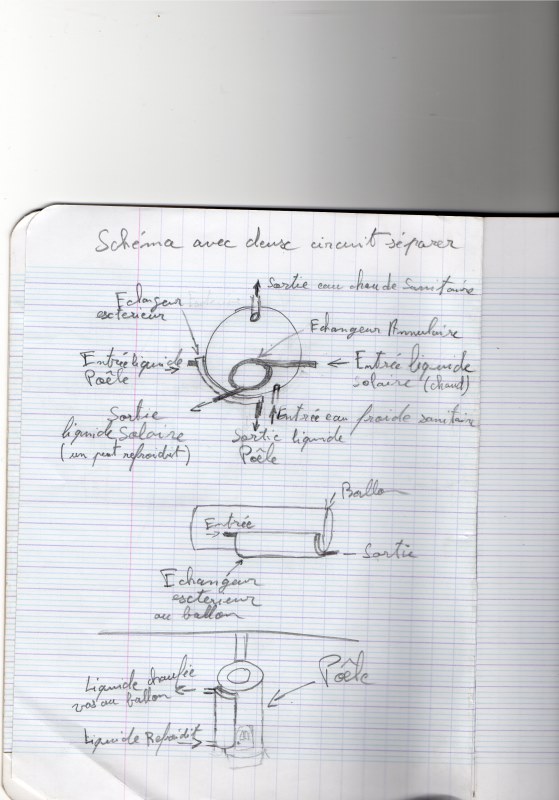 Schéma avec deux circuit séparer
Sortie eau chaude sanitaire
Echangeur
exterieur
Echangeur Annulaire
Entrée liquide
Poêle
Entrée liquide
solaire (chaud)
Sortie
liquide Solaire
(un peut refroidit)
Entrée eau froide sanitaire
Sortie liquide
Poêle
Ballon
Entrée
Sortie
Echangeur
exterieur
au ballon
Poêle
Liquide chaufée
vas au ballon
Liquide Refroidit